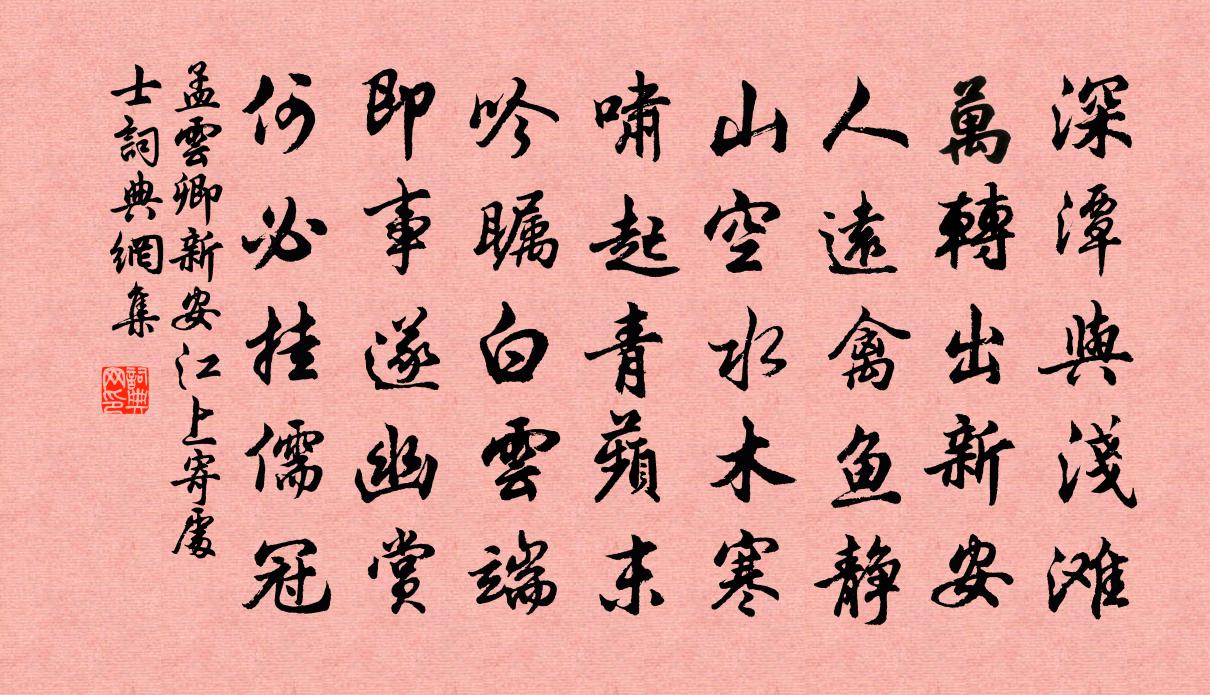 深潭與淺滩
萬轉出新安
人遠禽鱼静
山空水木寒
嘯起青蘋末
吟瞩白雲端
即事遂幽賞
何必挂儒冠
孟雲卿新安江上寄處
士詞典網集
詞典网印